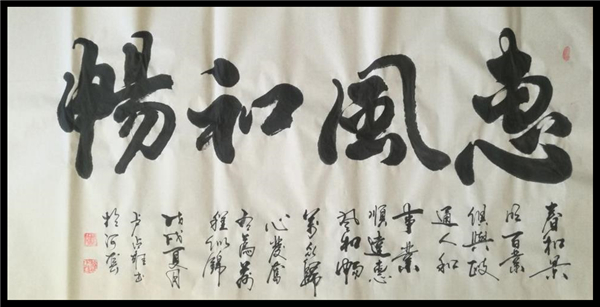 惠風和暢
春和景
明百業
俱興政
通人和
事業
順達惠
風和暢
萬衆歸
心發奮
有為前
程似錦
戊戌夏月
书
於河